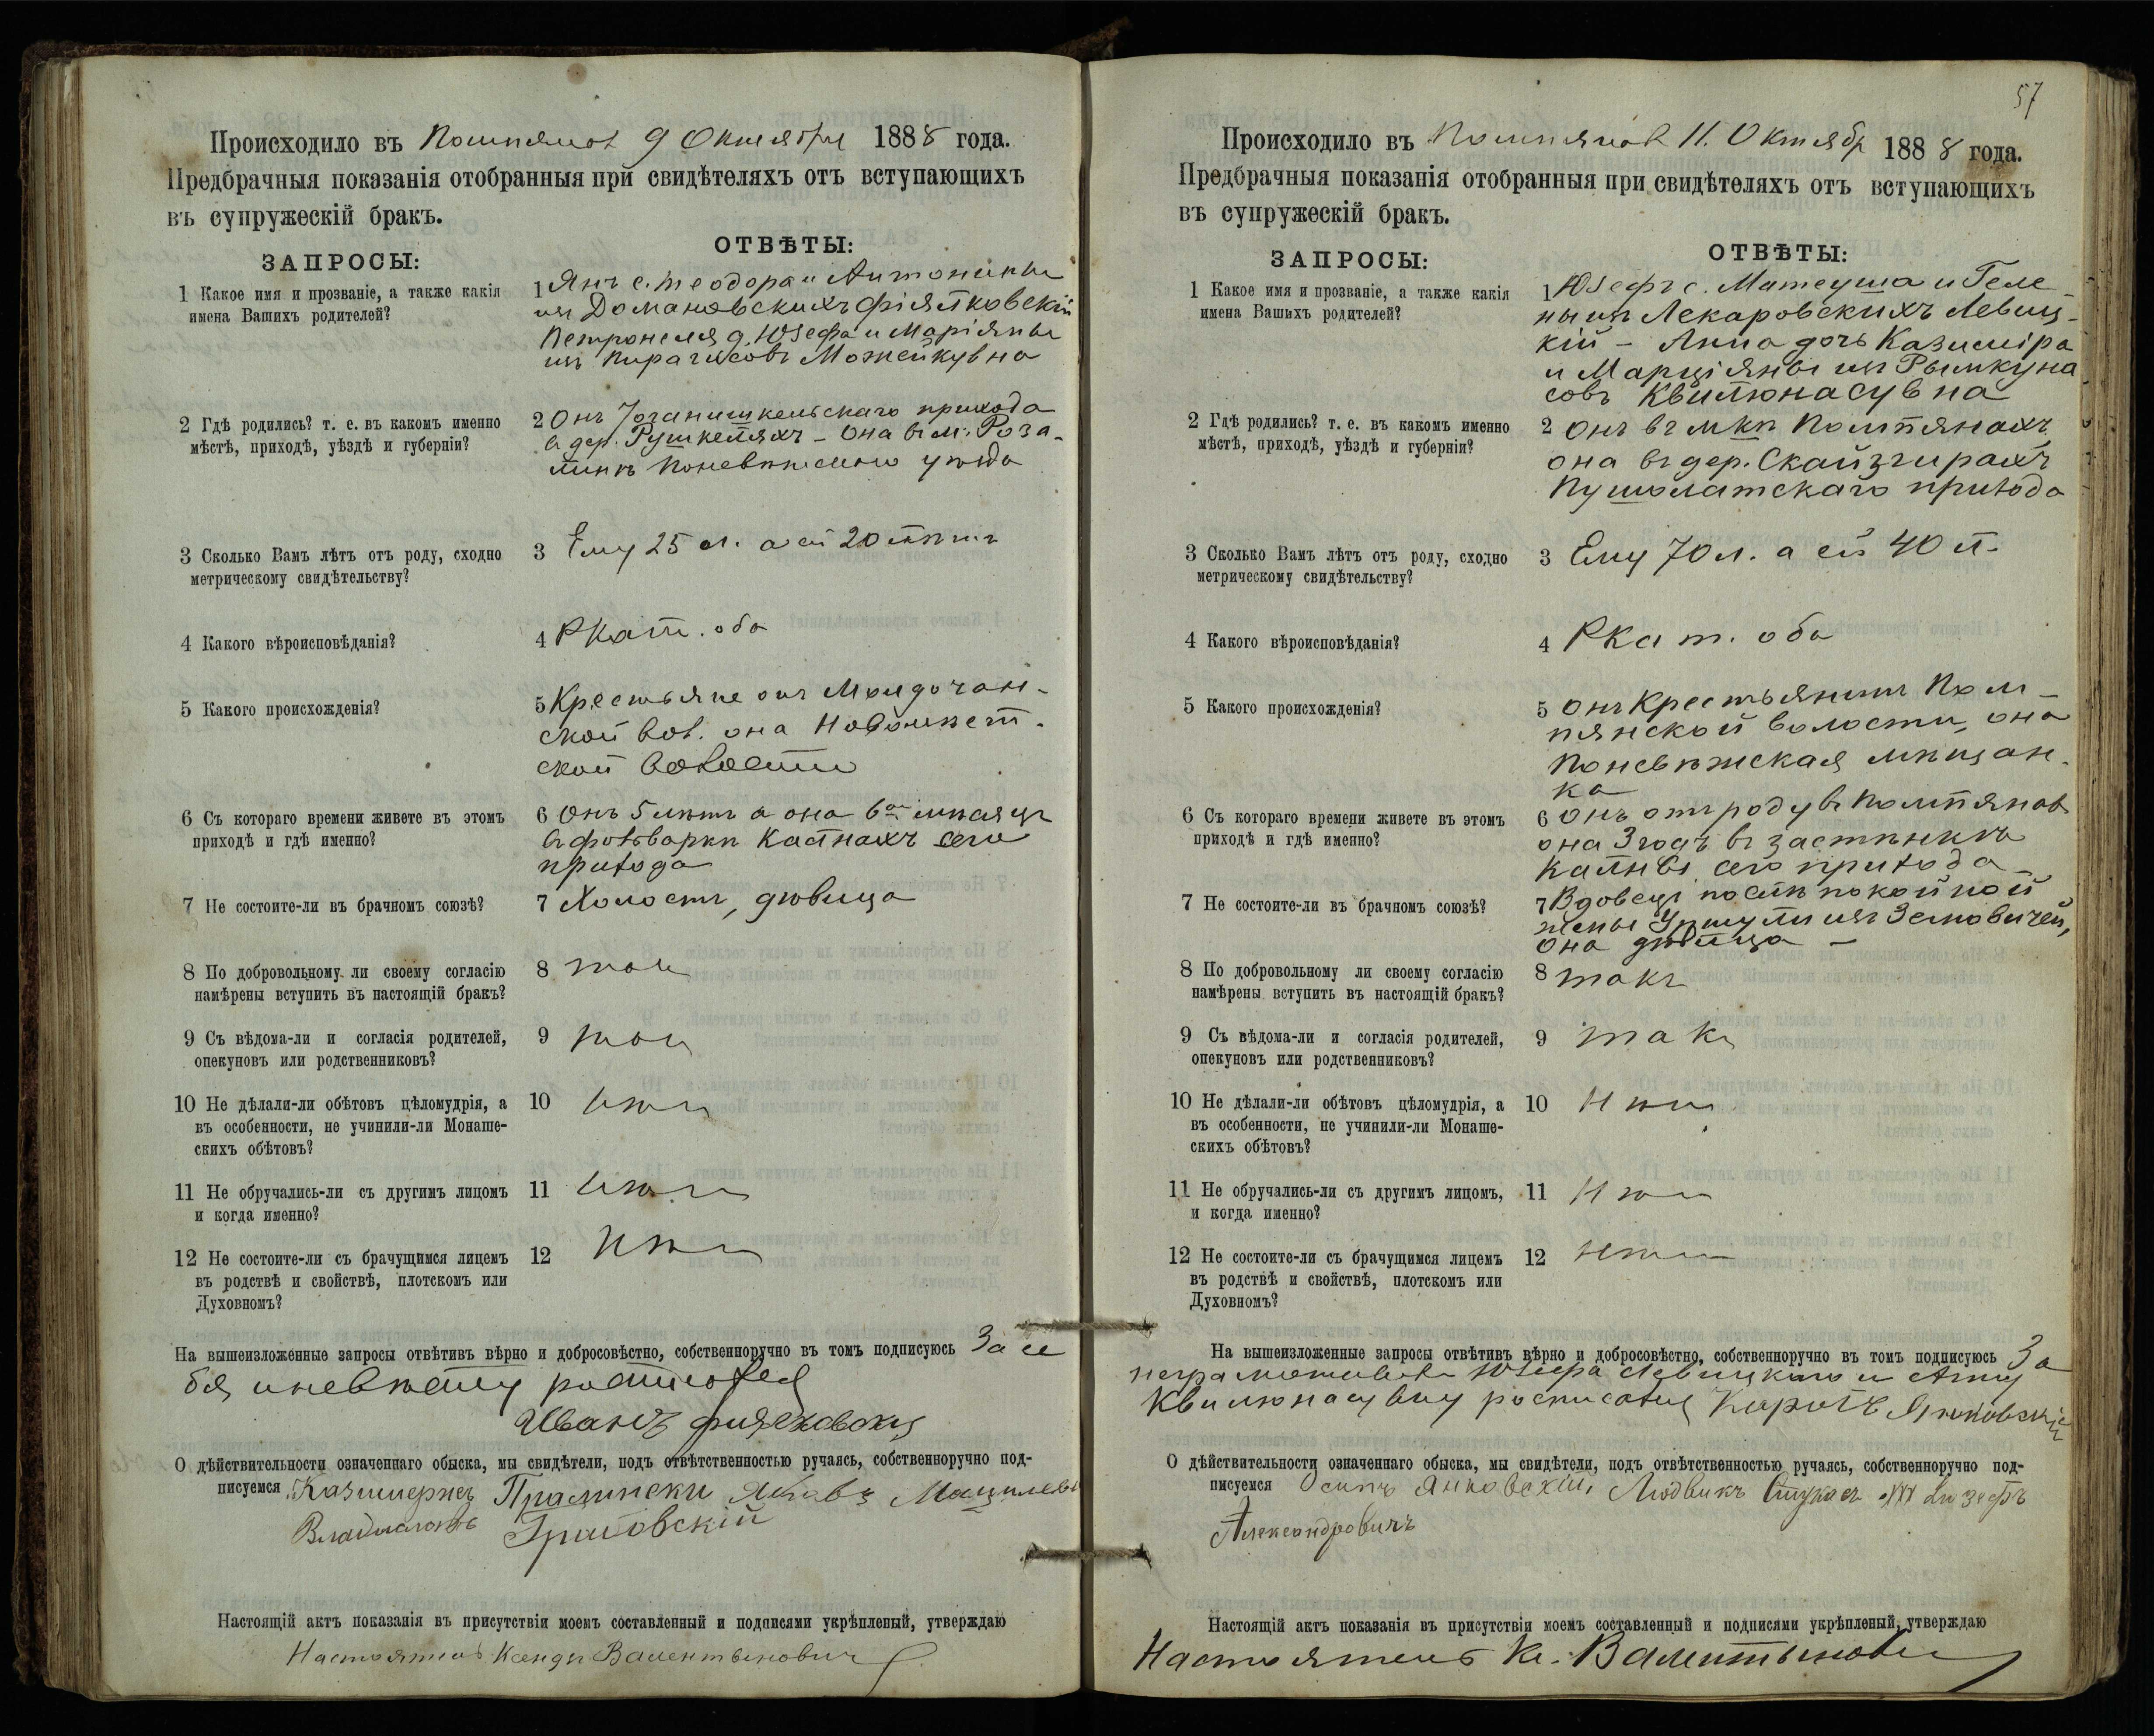 Происходило въ Помпянах 9 Октября 1888 года.
Предбрачныя показанія отобранныя при свидѣтеляхъ отъ вступающихъ
въ супружескій бракъ.
ЗАПРОСЫ:
ОТВѢТЫ:
1 Какое имя и прозваніе, а также какія
имена Вашихъ родителей?
1 Янъ с. Теодора и Антонины
изъ Домановскихъ Фіялковскій
Петронеля д. Юзефа и Маріяны
изъ Пирагисовъ Можейкувна
2 Гдѣ родились? т. е. въ какомъ именно
мѣстѣ, приходѣ, уѣздѣ и губерніи?
2 Онъ Іоганишкельскаго прихода
въ дер. Рушкеляхъ – Она въ м. Роза-
линѣ Поневѣжскаго уѣзда
3 Сколько Вамъ лѣтъ отъ роду, сходно
метрическому свидѣтельству?
3 Ему 25 л. а ей 20 лѣтъ
4 Какого вѣроисповѣданія?
4 РКат. оба
5 Какого происхожденія?
5 Крестьяне онъ
ской вол. она Новомѣст-
ской волости
6 Съ котораго времени живете въ этомъ
приходѣ и гдѣ именно?
6 Онъ 5 лѣтъ а она 6 мѣсяцъ
въ фольварки Калнахъ сего
прихода
7 Не состоите-ли въ брачномъ союзѣ?
7 Холостъ, дѣвица
8 По добровольному ли своему согласію
намѣрены вступить въ настоящій бракъ?
8 такъ
9 Съ вѣдома-ли и согласія родителей,
опекуновъ или родственниковъ?
9 такъ
10 Не дѣлали-ли обѣтовъ цѣломудрія, а
въ особенности, не учинили-ли Монаше-
скихъ обѣтовъ?
10 нѣтъ
11 Не обручались-ли съ другимъ лицомъ
и когда именно?
11 нѣтъ
12 Не состоите-ли съ брачущимся лицемъ
въ родствѣ и свойствѣ, плотскомъ или
Духовномъ?
12 Нѣтъ
На вышеизложенные запросы отвѣтивъ вѣрно и добросовѣстно, собственноручно въ томъ подписуюсь За се
бя и невѣсту
Иванъ
О дѣйствительности означеннаго обыска, мы свидѣтели, подъ отвѣтственностью ручаясь, собственноручно под-
писуемся Казимержъ
Настоящій актъ показанія въ присутствіи моемъ составленный и подписями укрѣпленый, утверждаю
Настоятель Ксендзъ Валентыновичъ
57
Происходило въ Помпянах 11. Октябр 1888 года.
Предбрачныя показанія отобранныя при свидѣтеляхъ отъ вступающихъ
въ супружескій бракъ.
ЗАПРОСЫ:
ОТВѢТЫ:
1 Какое имя и прозваніе, а также какія
имена Вашихъ родителей?
1 Юзефъ с. Матеуша и Геле-
ны изъ Лекаровскихъ Левиц-
кій – Анна дочь Казиміра
и Марціяны изъ Рымкуна
совъ Квилюнасувна
2 Гдѣ родились? т. е. въ какомъ именно
мѣстѣ, приходѣ, уѣздѣ и губерніи?
2 Онъ въ мкѣ Помпянахъ
она въ дер. Скайзгирахъ
Пушолатскаго прихода
3 Сколько Вамъ лѣтъ отъ роду, сходно
метрическому свидѣтельству?
3 Ему 70 л. а ей 40 л.
4 Какого вѣроисповѣданія?
4 РКат. оба
5 Какого происхожденія?
5 Онъ Крестьянинъ Пом-
пянской волости, она
Поневѣжская мѣщан-
ка
6 Съ котораго времени живете въ этомъ
приходѣ и гдѣ именно?
6 Онъ отъ роду въ Помпянах
она 3 годъ въ застѣнкѣ
сего прихода
7 Не состоите-ли въ брачномъ союзѣ?
7 Вдовецъ послѣ покойной
жены Уршули изъ Земовичей,
она дѣвица –
8 По добровольному ли своему согласію
намѣрены вступить въ настоящій бракъ?
8 такъ
9 Съ вѣдома-ли и согласія родителей,
опекуновъ или родственниковъ?
9 такъ
10 Не дѣлали-ли обѣтовъ цѣломудрія, а
въ особенности, не учинили-ли Монаше-
скихъ обѣтовъ?
10 Нѣтъ
11 Не обручались-ли съ другимъ лицомъ,
и когда именно?
11 Нѣтъ
12 Не состоите-ли съ брачущимся лицемъ
въ родствѣ и свойствѣ, плотскомъ или
Духовномъ?
12 Нѣтъ
На вышеизложенные запросы отвѣтивъ вѣрно и добросовѣстно, собственноручно въ томъ подписуюсь За
Юзефа Левицкаго и Анну
Квилюнасувну росписался Кароль Янковскій
О дѣйствительности означеннаго обыска, мы свидѣтели, подъ отвѣтственностью ручаясь, собственноручно под-
писуемся Осипъ Янковскій, Людвикъ Стукасъ XXX Юзефъ
Александровичъ
Настоящій актъ показанія въ присутствіи моемъ составленный и подписями укрѣпленый, утверждаю
Настоятель Кс. Валентынович